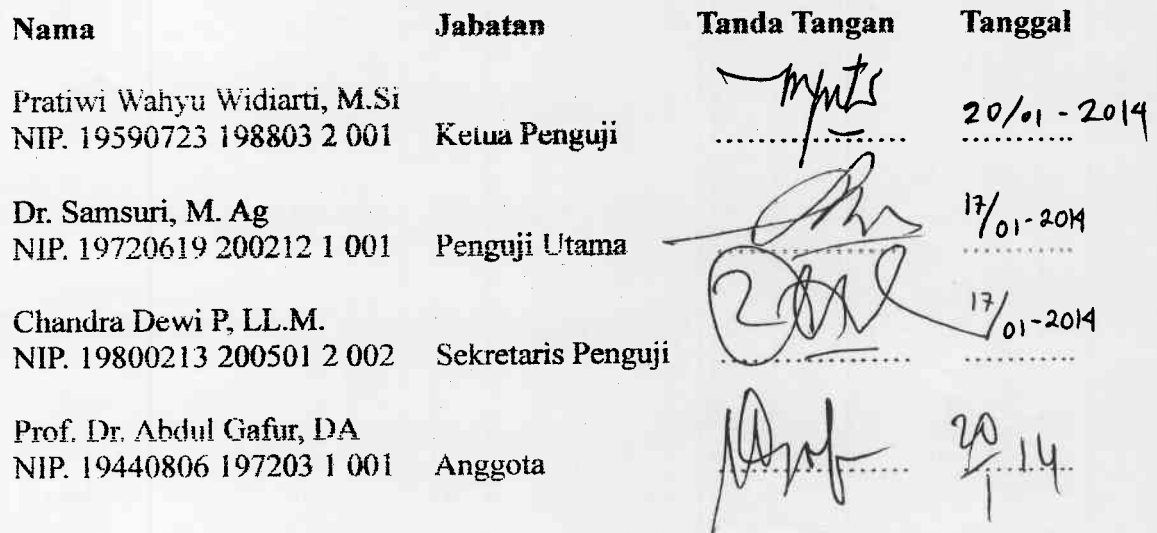 Nama Jabatan Tanda Tangan Tanggal
Pratiwi Wahyu Widiarti, M.Si
NIP. 19590723 198803 2 001 Ketua Penguji .................. 20/01 - 2014
Dr. Samsuri, M. Ag
NIP. 19720619 200212 1 001 Penguji Utama .................. 17/01-2014
Chandra Dewi P, LL.M.
NIP. 19800213 200501 2 002 Sekretaris Penguji .................. 17/01-2014
Prof. Dr. Abdul Gafur, DA
NIP. 19440806 197203 1 001 Anggota .................. 20/1 14